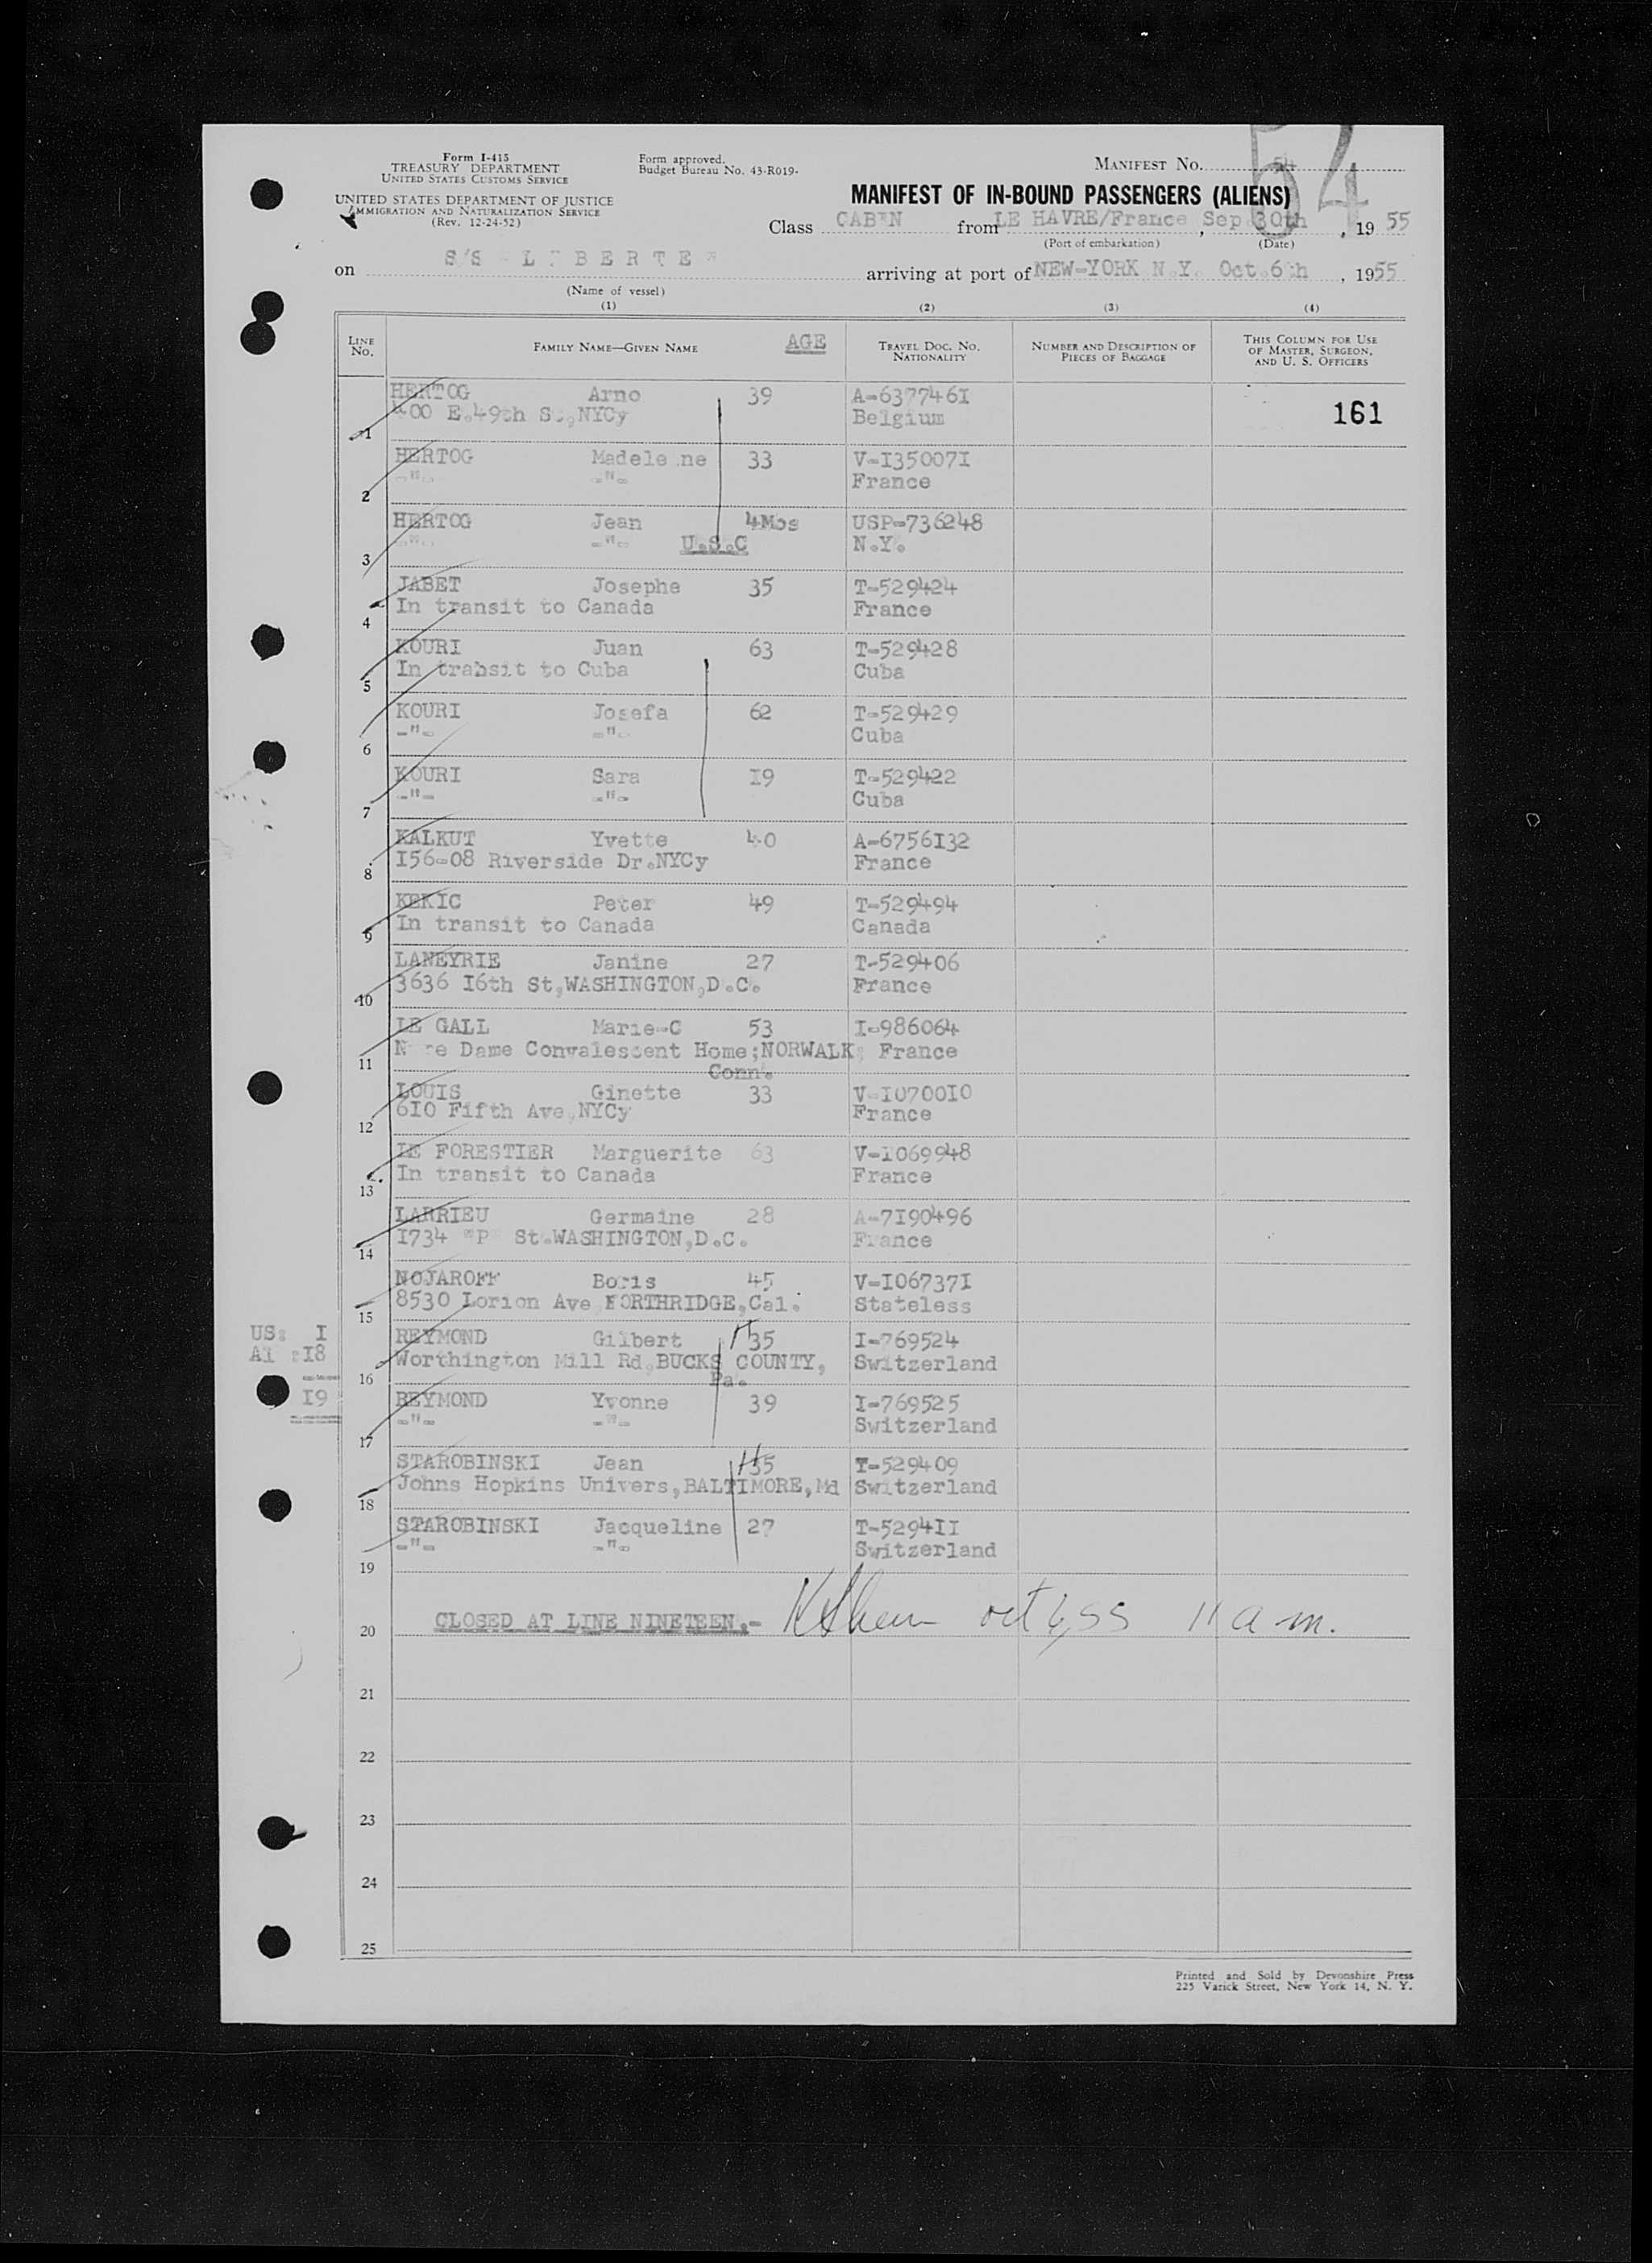 Form I-415
TREASURY DEPARTMENT
UNITED STATES CUSTOMS SERVICE
UNITED STATES DEPARTMENT OF JUSTICE
IMMIGRATION AND NATURALIZATION SERVICE
(Rev. 12-24-52)
Form approved.
Budget Bureau No. 43-R019-
MANIFEST No. 54
54
MANIFEST OF IN-BOUND PASSENGERS (ALIENS)
Class CABIN from LE HAVRE/France , Sep.30th , 19 55
(Port of embarkation) (Date)
on S/S "LIBERTE" arriving at port of NEW-YORK N.Y. Oct.6th , 1955
(Name of vessel)
(1) (2) (3) (4)
LINE No. FAMILY NAME—GIVEN NAME AGE TRAVEL DOC. NO. NATIONALITY NUMBER AND DESCRIPTION OF PIECES OF BAGGAGE THIS COLUMN FOR USE OF MASTER, SURGEON, AND U. S. OFFICERS
HERTOG Arno 39 A-6377461
400 E.49th St,NYCy Belgium 161
1
HERTOG Madeleine 33 V-I35007I
-"- -"- France
2
HERTOG Jean 4Mos USP-736248
-"- -"- U.S.C N.Y.
3
JABET Josephe 35 T-529424
In transit to Canada France
4
KOURI Juan 63 T-529428
In trahsit to Cuba Cuba
5
KOURI Josefa 62 T-529429
-"- -"- Cuba
6
KOURI Sara I9 T-529422
-"- -"- Cuba
7
KALKUT Yvette 40 A-6756I32
I56-08 Riverside Dr.NYCy France
8
KEKIC Peter 49 T-529494
In transit to Canada Canada
9
LANEYRIE Janine 27 T-529406
3636 I6th St,WASHINGTON,D.C. France
10
LE GALL Marie-C 53 I-986064
Dame Convalescent Home;NORWALK; France
11 Conn.
LOUIS Ginette 33 V-I0700I0
6I0 Fifth Ave,NYCy France
12
LE FORESTIER Marguerite 63 V-I069948
In transit to Canada France
13
LARRIEU Germaine 28 A-7I90496
I734 "P" St.WASHINGTON,D.C. France
14
NOJAROFF Boris 45 V-I06737I
8530 Lorion Ave NORTHRIDGE,Cal. Stateless
15
US: I
Al :I8
I9
REYMOND Gilbert 35 I-769524
Worthington Mill Rd,BUCKS COUNTY, Switzerland
16 Pa.
REYMOND Yvonne 39 I-769525
-"- -"- Switzerland
17
STAROBINSKI Jean 35 T-529409
Johns Hopkins Univers,BALTIMORE,Md Switzerland
18
STAROBINSKI Jacqueline 27 T-5294II
-"- -"- Switzerland
19
20 CLOSED AT LINE NINETEEN.- oct 6,55 11 a m.
21
22
23
24
25
Printed and Sold by Devonshire Press
225 Varick Street, New York 14, N. Y.